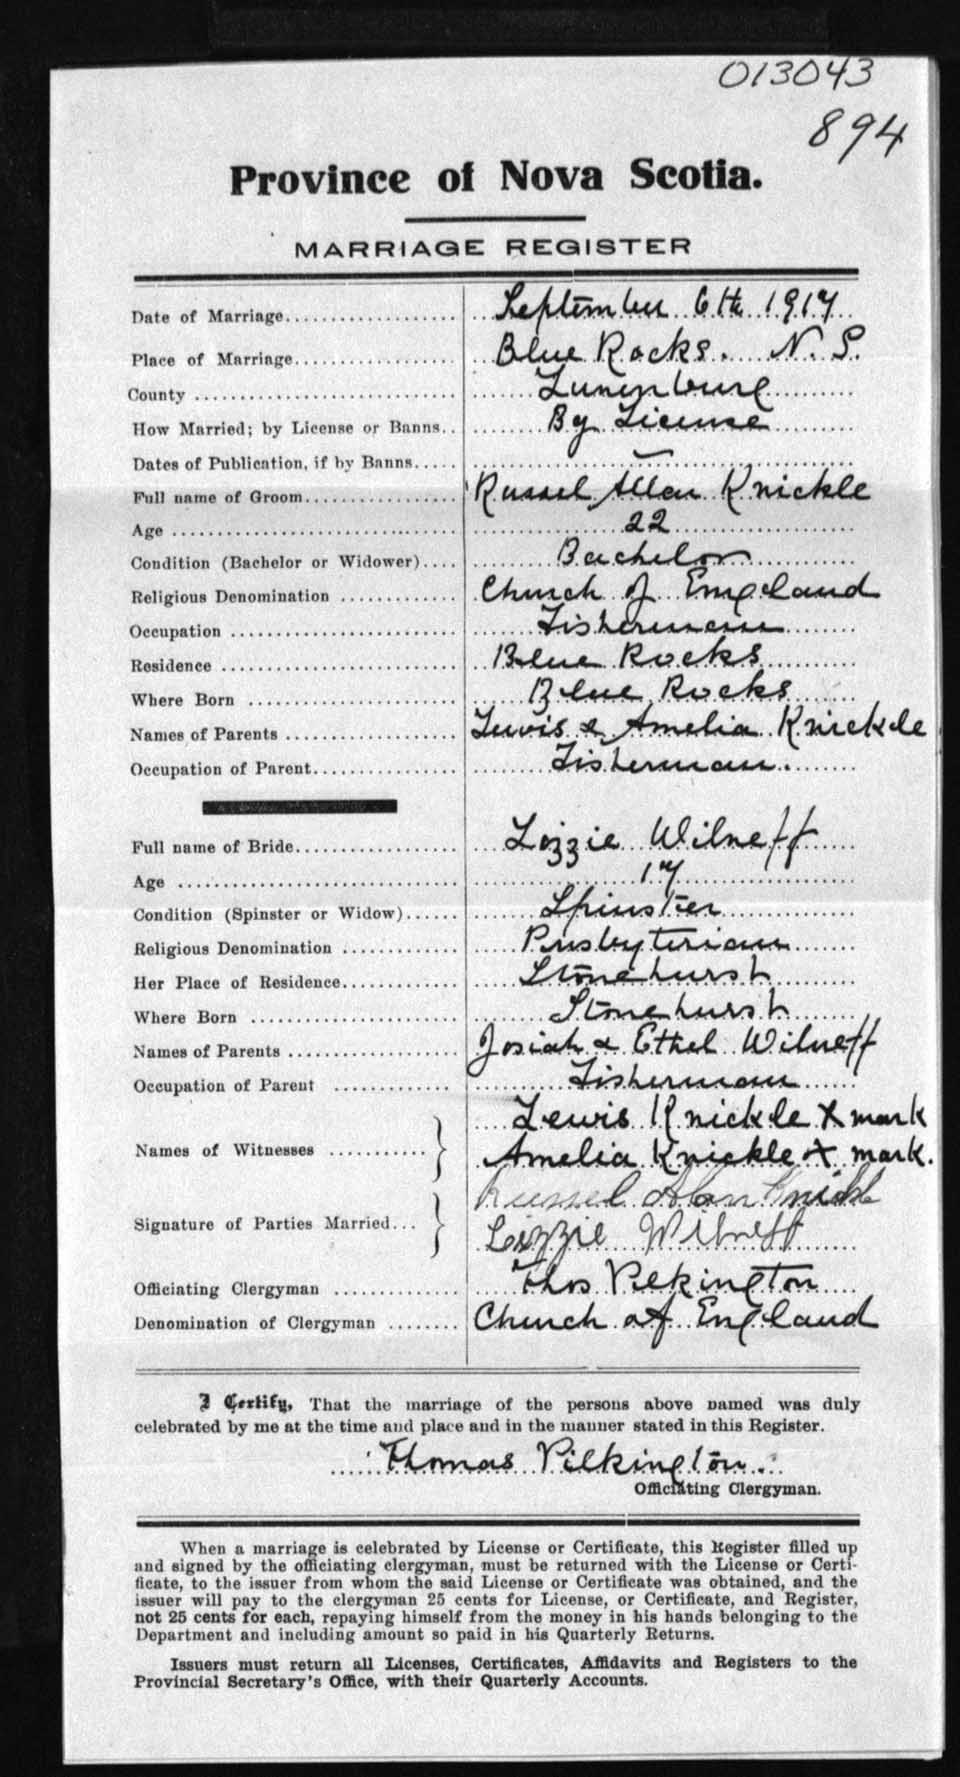 013043
894
Province of Nova Scotia.
MARRIAGE REGISTER
Date of Marriage.................... September 6th 1917
Place of Marriage.................. Blue Rocks. N. S.
County ............................. Lunenburg
How Married; by License or Banns.. By License
Dates of Publication, if by Banns..... —
Full name of Groom................. Russel Allan Knickle
Age ................................ 22
Condition (Bachelor or Widower).... Bachelor
Religious Denomination ............. Church of England
Occupation ......................... Fisherman
Residence .......................... Blue Rocks
Where Born ....................... Blue Rocks
Names of Parents ................... Lewis & Amelia Knickle
Occupation of Parent................ Fisherman.
Full name of Bride.................. Lizzie Wilneff
Age ............................... 17
Condition (Spinster or Widow)...... Spinster
Religious Denomination ............. Presbyterian
Her Place of Residence............. Stonehurst
Where Born ....................... Stonehurst
Names of Parents .................. Josiah & Ethel Wilneff
Occupation of Parent ............. Fisherman
Lewis Knickle X mark
Names of Witnesses ........... } Amelia Knickle X mark.
Russel Alan Knickl
Signature of Parties Married... } Lizzie Wilneff
Officiating Clergyman ............. Thos Pilkington
Denomination of Clergyman ........ Church of England
I Certify, That the marriage of the persons above named was duly
celebrated by me at the time and place and in the manner stated in this Register.
Thomas Pilkington.
Officiating Clergyman.
When a marriage is celebrated by License or Certificate, this Register filled up
and signed by the officiating clergyman, must be returned with the License or Certi-
ficate, to the issuer from whom the said License or Certificate was obtained, and the
issuer will pay to the clergyman 25 cents for License, or Certificate, and Register,
not 25 cents for each, repaying himself from the money in his hands belonging to the
Department and including amount so paid in his Quarterly Returns.
Issuers must return all Licenses, Certificates, Affidavits and Registers to the
Provincial Secretary's Office, with their Quarterly Accounts.